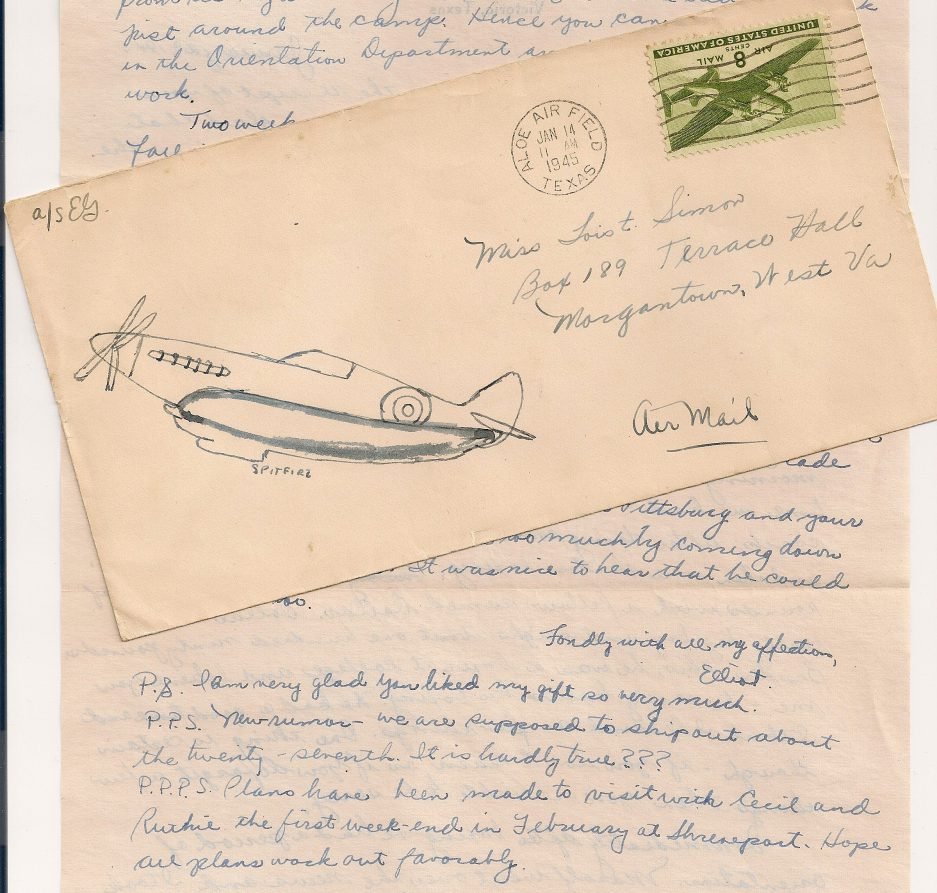 just around the camp. Hence you can
in the Orientation Department
work.
Two week
Fall
UNITED STATES OF AMERICA
AIR MAIL
8 CENTS
ALOE AIR FIELD
JAN 14
11 AM
1945
TEXAS
a/s EG.
Miss Lois t. Simon
Box 189 Terrace Hall
Morgantown, West Va
Air Mail
SPITFIRE
cade
Pittsburg and your
too much by coming down
It was nice to hear that he could
too.
Fondly with all my affection,
Elliot.
P.S. I am very glad you liked my gift so very much.
P.P.S. New rumor - we are supposed to ship out about
the twenty-seventh. It is hardly true???
P.P.P.S. Plans have been made to visit with Cecil and
Ruthie the first week-end in February at Shreveport. Hope
all plans work out favorably.